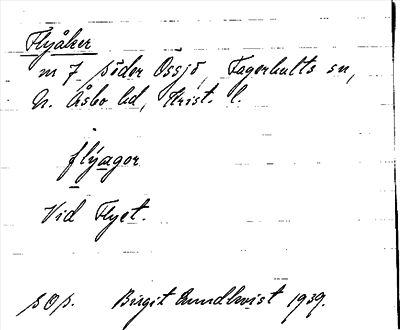 Flyåker
m 7 söder Ossjö, Fagerhults sn,
N. Åsbo hd, Krist. l.
flýagor
Vid Flyet.
sOp. Birgit Sundkvist 1939.